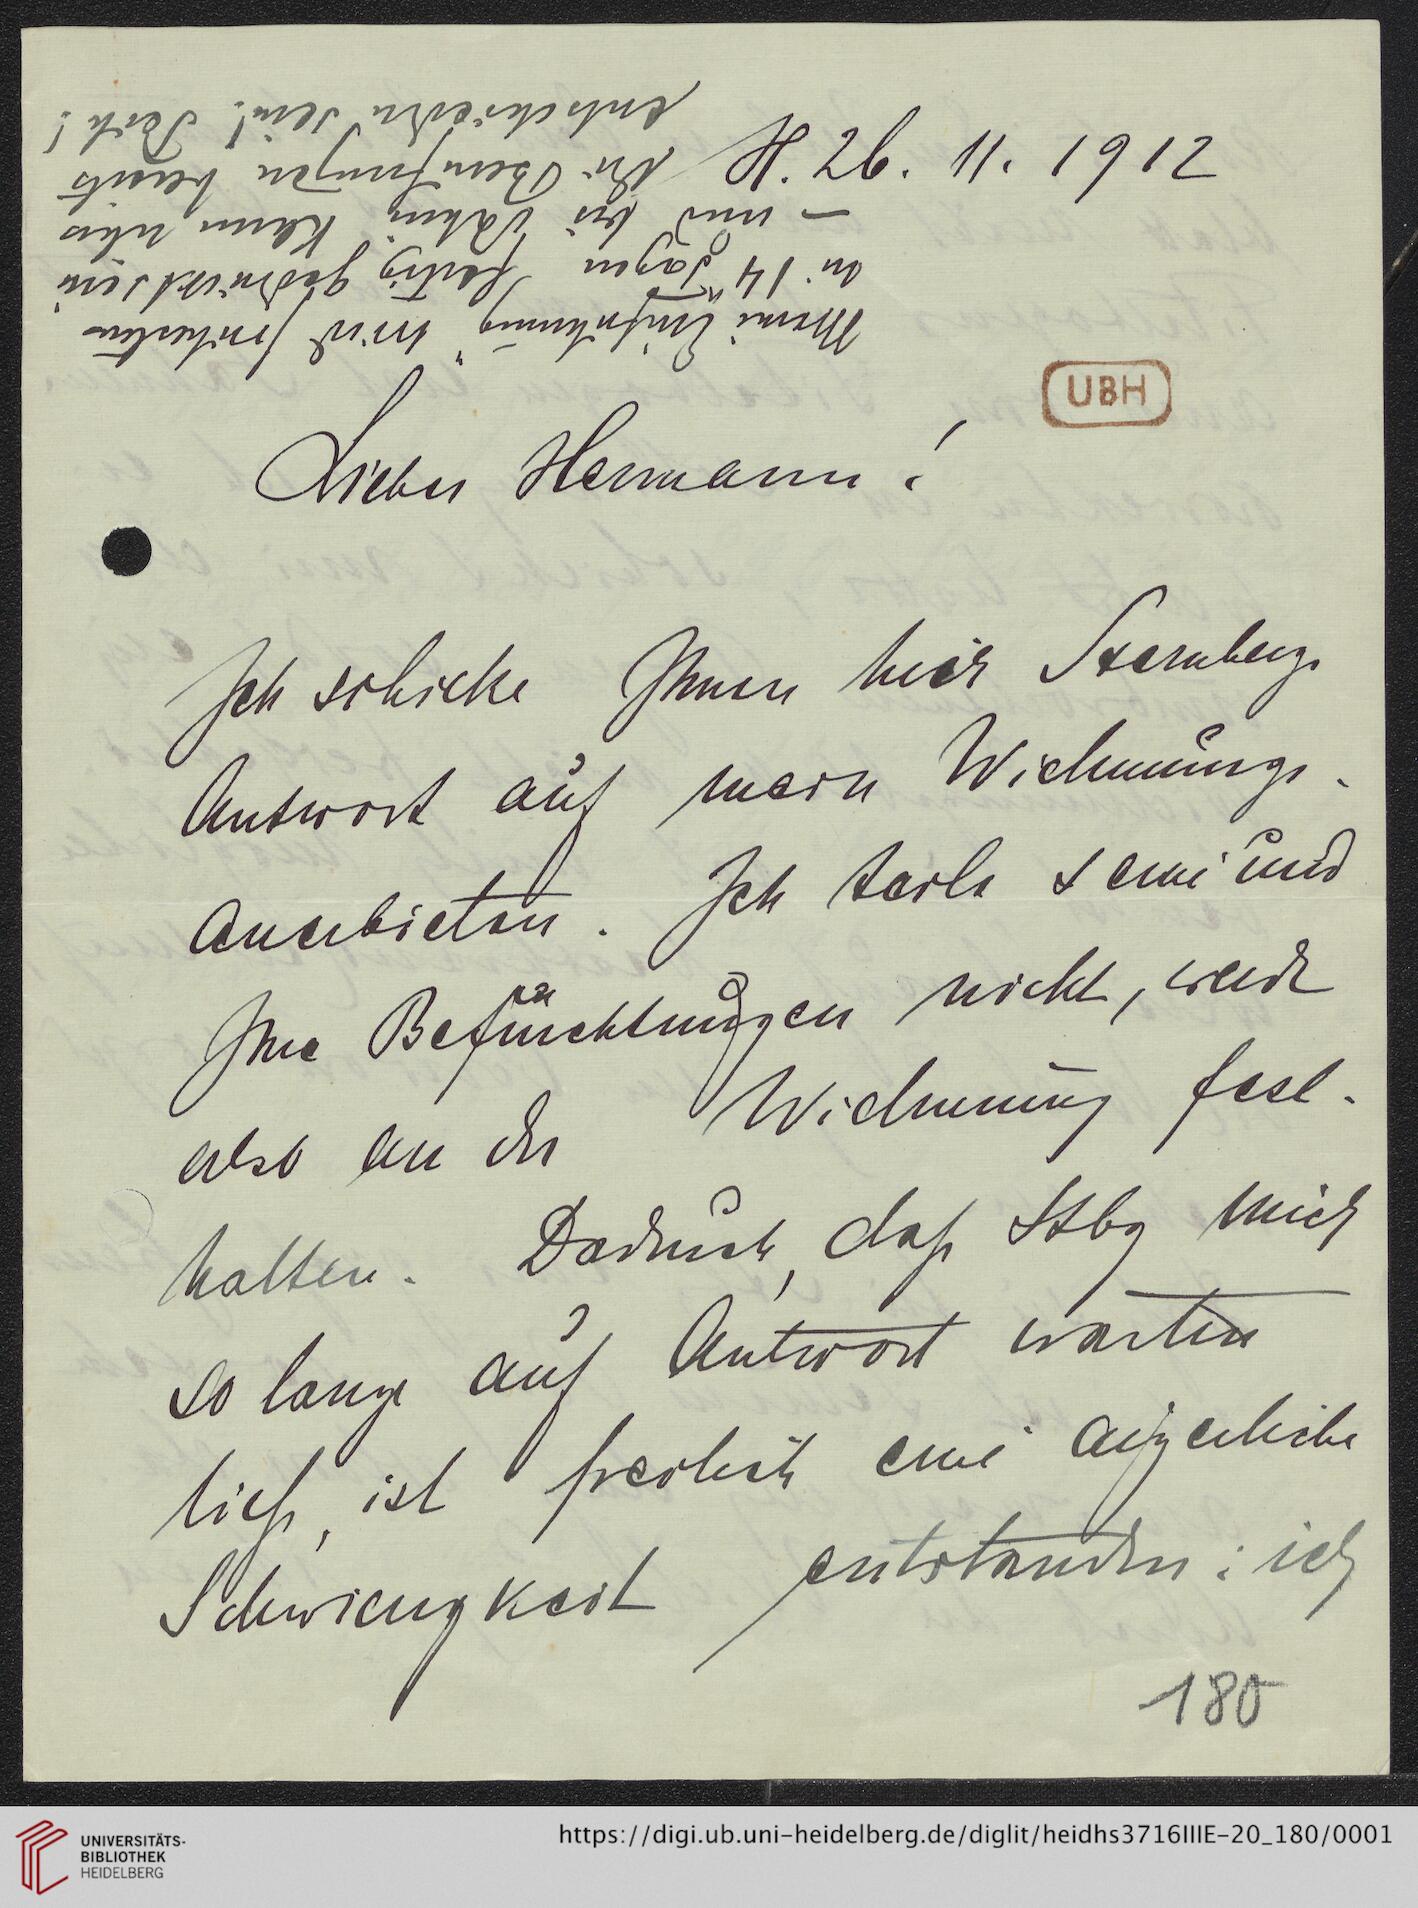 H. 26. 11. 1912
Meine „Einführung“ wird spätestens
in 14 Tagen fertig gedruckt sein
– und bis dahin kann über
die Berufungen bereits
entschieden sein!
UBH
Lieber Hermann!
Ich schicke Ihnen hier Sternbergs
Antwort auf mein Widmungs-
anerbieten. Ich teile seine und
Ihre Befürchtungen nicht, werde
also an der Widmung fest-
halten. Dadurch, daß Stbg mich
so lange auf Antwort warten
ließ, ist freilich eine ärgerliche
Schwierigkeit entstanden: ich
180
UNIVERSITÄTS-
BIBLIOTHEK
HEIDELBERG
https://digi.ub.uni-heidelberg.de/diglit/heidhs3716IIIE-20_180/0001